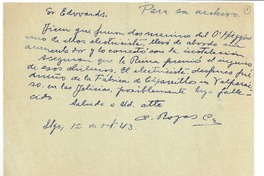 Sr Edwards. Para su archivo.
Dicen que fueron dos marinos del O'Higgins
uno de ellos electricista, llevó de abordo el
acumulador y lo conectó con la instalación
Aseguran que la Reina premió el ingenio
de esos chilenos. El electricista después fue
dueño de la Fábrica de Cigarrillos en Valparaí-
so. en las Delicias, posiblemente haya falle-
cido
Saluda a Ud. atte
C. Rojas C
Stgo, 12 de 43.